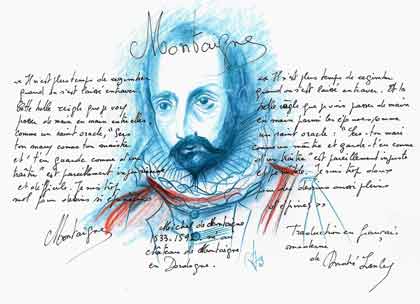 Montaigne
« Il n'est plus temps de regimber
quand on s'est laissé entraver.
Cette belle reigle que je voy
passer de main en main
comme un saint oracle, "Sers
ton mary comme ton maistre
et t'en guarde comme d'un
traître" est pareillement
et difficile. Je suis trop
mol pour
Montaigne
Michel de Montaigne
1533-1592
château de Montaigne
en Dordogne.
« Il n'est plus temps de regimber
quand on s'est laissé entraver. Et la
belle règle que je vois passer de main
en main parmi les
un saint oracle : "Sers ton mari
comme un maître et garde-t'en comme
d'un traître" est pareillement injuste
et Je suis trop doux
pour des desseins aussi pleins
d'épines »
Traduction en français
moderne
de André Lanly